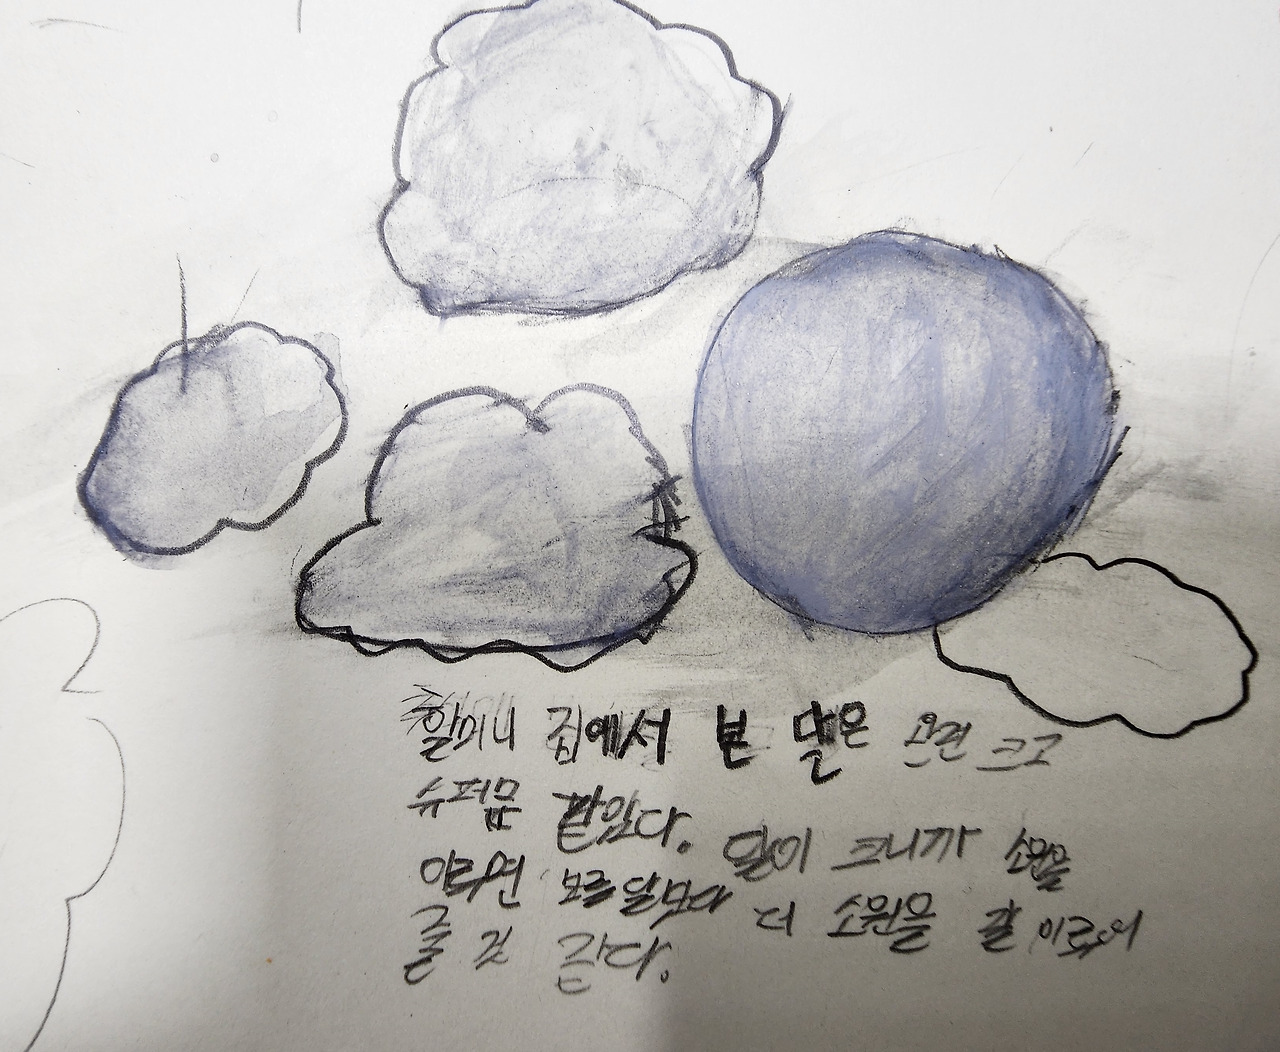 할머니 집에서 본 달은 완전 크고
슈퍼문 같았다. 달이 크니까 소원을
이루면 보름달보다 더 소원을 잘 이루어
줄 것 같다.